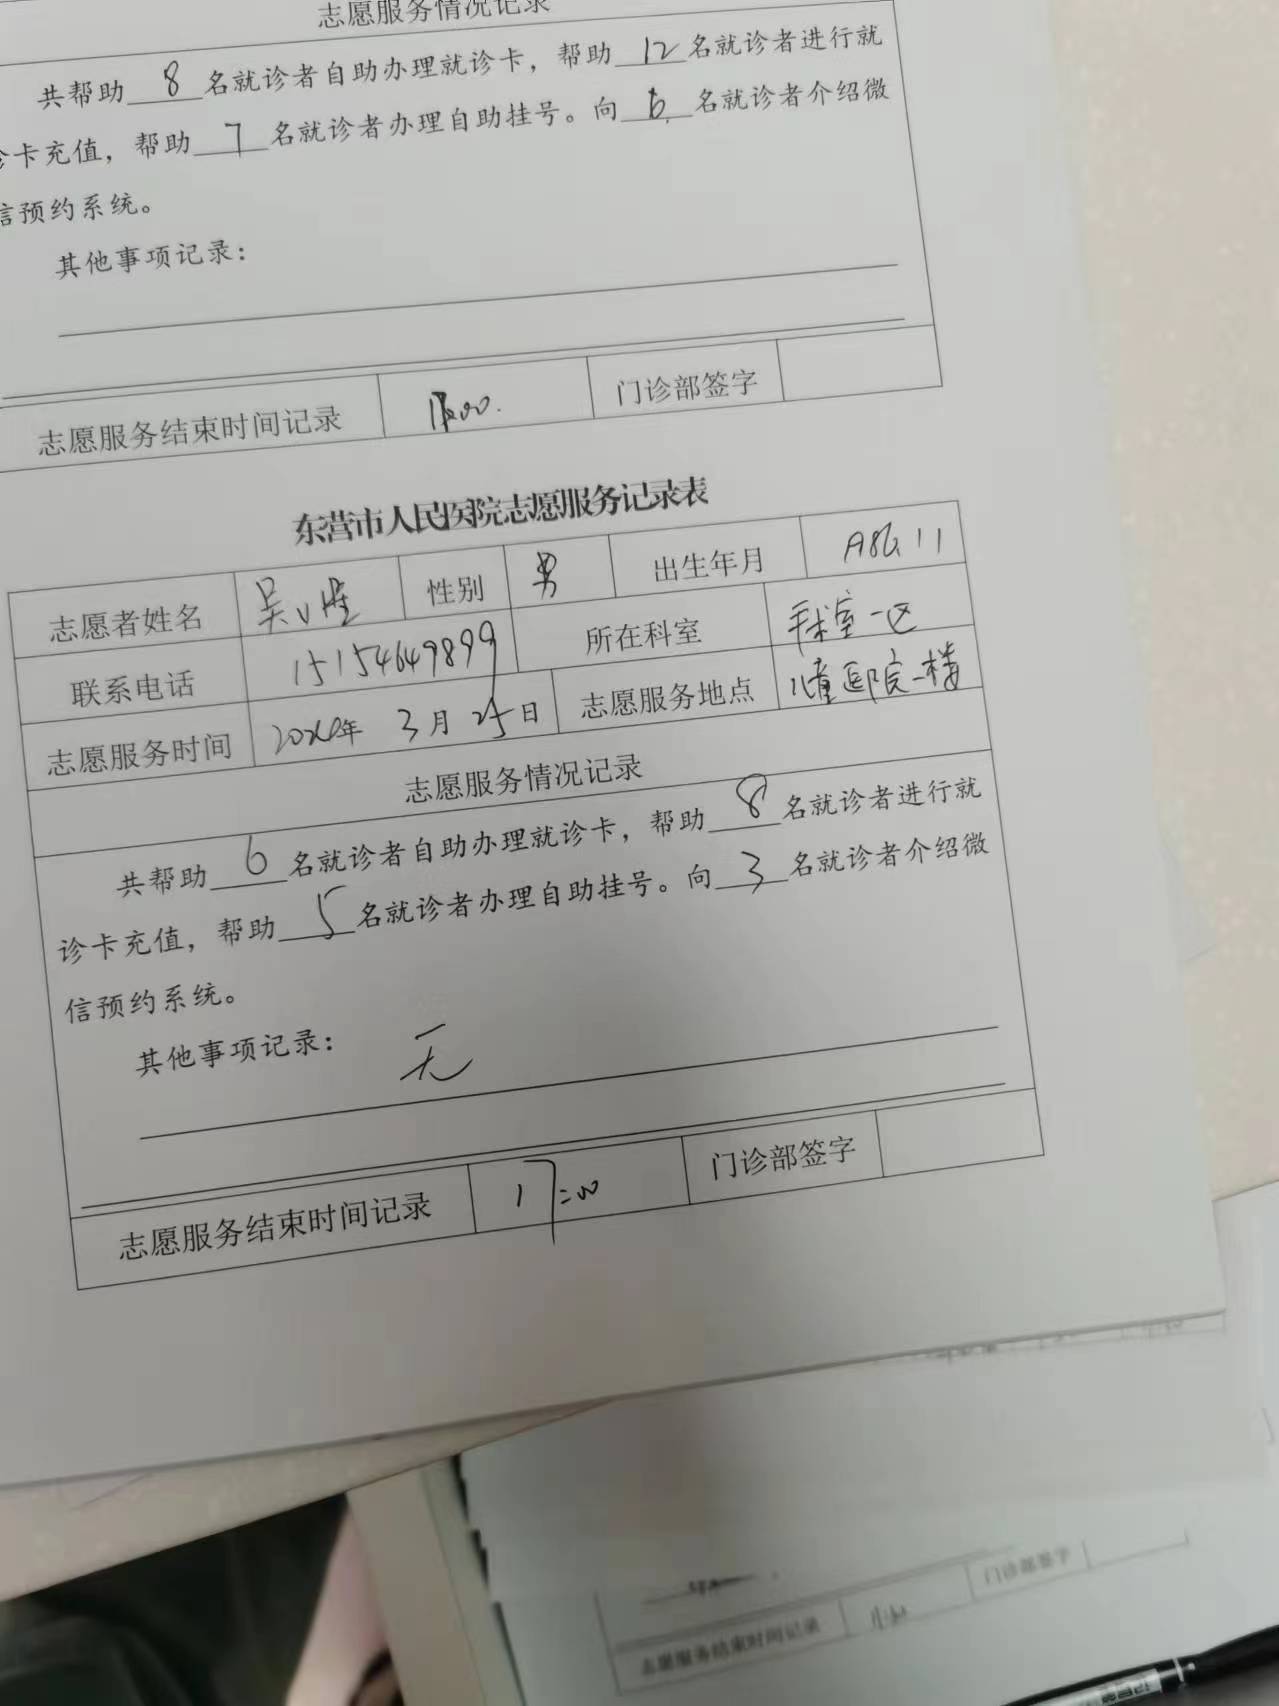 志愿服务情况记录
共帮助 8 名就诊者自助办理就诊卡，帮助 12 名就诊者进行就
诊卡充值，帮助 7 名就诊者办理自助挂号。向 6 名就诊者介绍微
信预约系统。
其他事项记录：
志愿服务结束时间记录 门诊部签字
东营市人民医院志愿服务记录表
志愿者姓名 吴 性别 男 出生年月
联系电话 15154649899 所在科室 手术室一区
志愿服务时间 2024年 3月 25日 志愿服务地点 儿童医院一楼
志愿服务情况记录
共帮助 6 名就诊者自助办理就诊卡，帮助 8 名就诊者进行就
诊卡充值，帮助 5 名就诊者办理自助挂号。向 3 名就诊者介绍微
信预约系统。
其他事项记录： 无
志愿服务结束时间记录 17:00 门诊部签字
门诊部签字
志愿服务结束时间记录